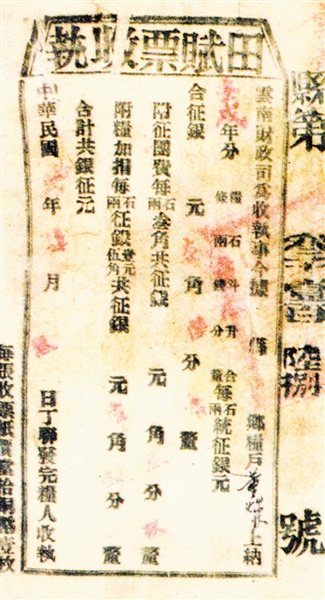 田賦票收執
縣第 陸捌 號
雲南財政司為收執事今據 鄉糧戶 上納
年分 糧 石 斗 升 合 每石統征銀元
條 兩 錢 分 釐 兩
合征銀 元 角 分 釐
附征團費每石兩叁角共征銀 元 角 分 釐
附糧加捐每石兩征銀壹元伍角共征銀 元 角 分 釐
合計共銀征元
中華民國 年 月 日丁聯發完糧人收執
每張收票紙價當拾銅幣壹枚